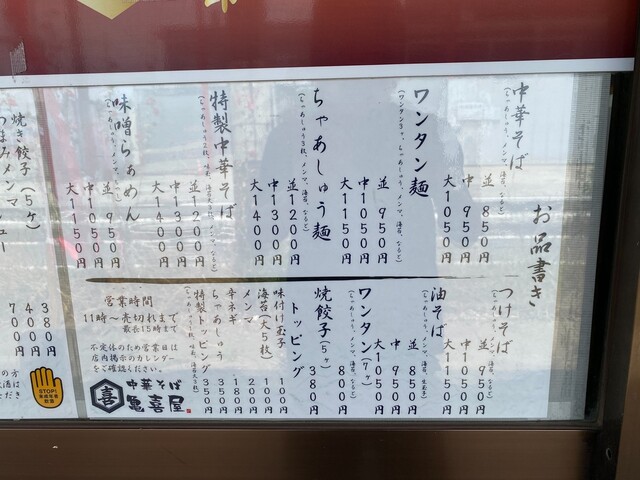 お品書き
中華そば
(ちゃあしゅう、メンマ、海苔、なると)
並 850円
中 950円
大 1050円
ワンタン麺
(ワンタン5ヶ、ちゃあしゅう、メンマ、海苔、なると)
並 950円
中 1050円
大 1150円
ちゃあしゅう麺
並 1200円
中 1300円
大 1400円
特製中華そば
並 1200円
中 1300円
大 1400円
味噌らぁめん
並 950円
中 1050円
大 1150円
つけそば
(ちゃあしゅう、メンマ、海苔、なると)
並 950円
中 1050円
大 1150円
油そば
並 850円
中 950円
大 1050円
ワンタン(7ヶ)
800円
焼餃子(5ヶ)
380円
トッピング
味付け玉子 100円
海苔(大5枚) 100円
メンマ 200円
辛ネギ 180円
ちゃあしゅう 350円
特製トッピング 350円
営業時間
11時〜売切れまで
最長15時まで
不定休のため営業日は
店内掲示のカレンダー
をご確認ください。
喜
中華そば
亀喜屋
焼き餃子(5ヶ)
380円
400円
700円
STOP!